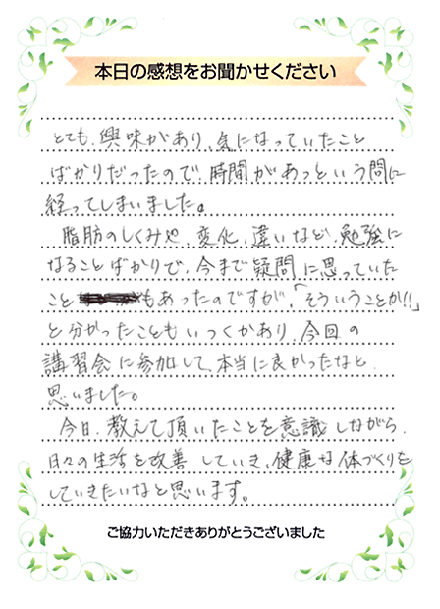 本日の感想をお聞かせください
とても、興味があり、気になっていたこと
ばかりだったので、時間があっという間に
経ってしまいました。
脂肪のしくみや、変化、違いなど、勉強に
なることばかりで、今まで疑問に思っていた
こと もあったのですが、「そういうことか!!」
と分かったこともいくつかあり、今回の
講習会に参加して、本当に良かったなと
思いました。
今日、教えて頂いたことを意識しながら、
日々の生活を改善していき、健康な体づくりを
していきたいなと思います。
ご協力いただきありがとうございました